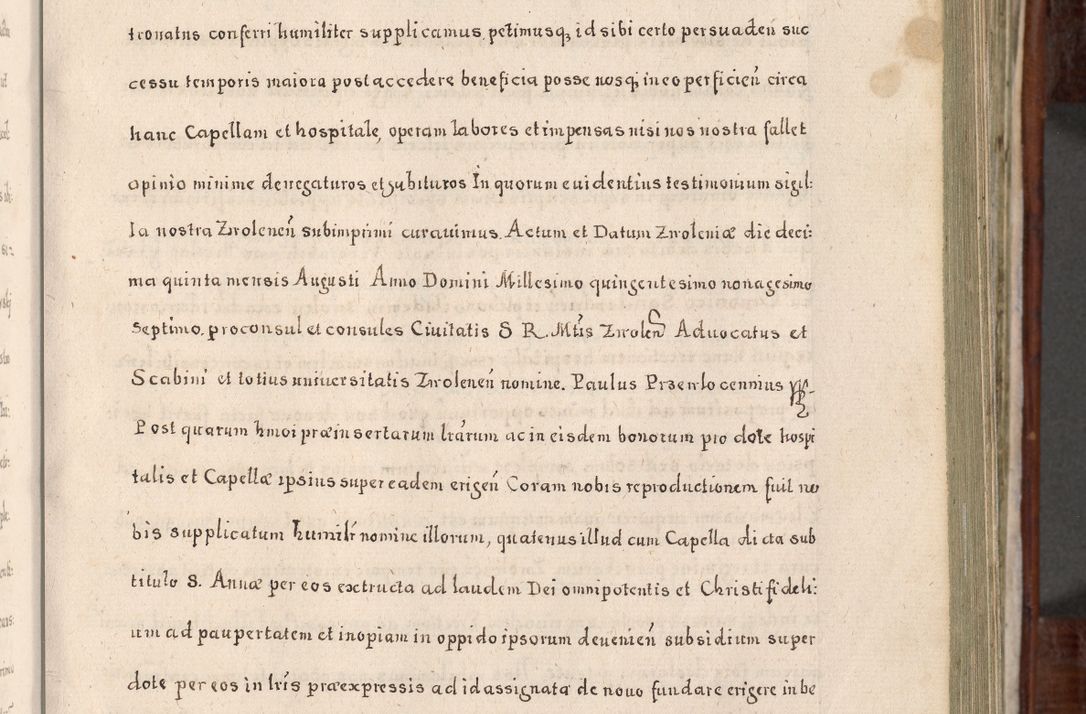 tronatus conferri humiliter supplicamus, petimusq; id sibi certo persuadeñ suc
cessu temporis maiora post accedere beneficia posse nosq; in eo perficieñ circa
hanc Capellam et hospitale, operam labores et impensas nisi nos nostra fallet
opinio minime denegaturos et subituros In quorum euidentius testimonium sigil:
la nostra Zwoleneñ subimprimi curauimus. Actum et Datum Zwoleniæ die deci:
ma quinta mensis Augusti Anno Domini Millesimo quingentesimo nonagesimo
septimo. proconsul et consules Ciuitatis S R. Mtis Zwoleñ Aduocatus et
Scabini et totius uniuersitatis Zwoleneñ nomine. Paulus Praewlocennius
Post quarum hmoi præinsertarum lrarum ac in eisdem bonorum pro dote hospi
talis et Capellæ ipsius super eadem erigeñ Coram nobis reproductionem fuit no
bis supplicatum humilr nomine illorum, quatenus illud cum Capella dicta sub
titulo S. Annæ per eos extructa ad laudem Dei omnipotentis et Christi fideli:
um ad paupertatem et inopiam in oppido ipsorum deuenieñ subsidium super
dote per eos in lris præexpressis ad id assignata de nouo fundare erigere in be